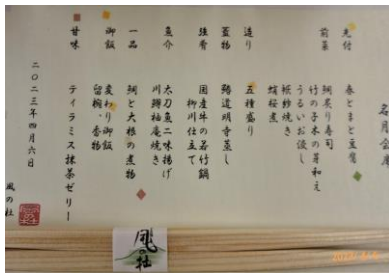 名月会席
先付
春とまと豆腐
前菜
鯛炙り寿司
竹の子木の芽和え
うるいお浸し
桜鱒焼き
蛸桜煮
造り
五種盛り
蓋物
鯛道明寺蒸し
強肴
国産牛の若竹鍋
柳川仕立て
魚介
太刀魚二味揚げ
川鱒柚庵焼き
一品
鯛と大根の煮物
御飯
変わり御飯
留椀、香物
甘味
ティラミス抹茶ゼリー
二〇二三年四月六日
風の社
風の社